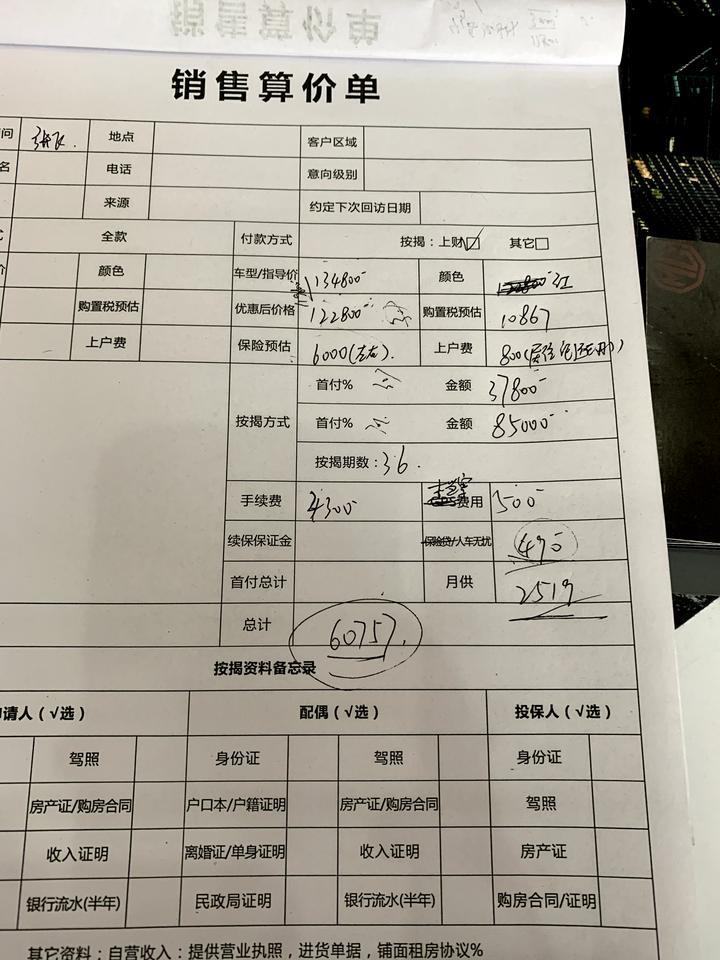 销售算价单
问 地点 客户区域
名 电话 意向级别
来源 约定下次回访日期
式 全款 付款方式 按揭：上财☑ 其它□
价 颜色 车型/指导价 134800 颜色 红
购置税预估 优惠后价格 122800 购置税预估 10867
上户费 保险预估 6000(左右). 上户费 800
首付% 金额 37800
按揭方式 首付% 金额 85000
按揭期数：36.
手续费 4300 费用 500
续保保证金 保险贷/人车无忧 490
首付总计 月供 2519
总计 60757.
按揭资料备忘录
请人（√选） 配偶（√选） 投保人（√选）
驾照 身份证 驾照 身份证
房产证/购房合同 户口本/户籍证明 房产证/购房合同 驾照
收入证明 离婚证/单身证明 收入证明 房产证
银行流水(半年) 民政局证明 银行流水(半年) 购房合同/证明
其它资料：自营收入：提供营业执照，进货单据，铺面租房协议%